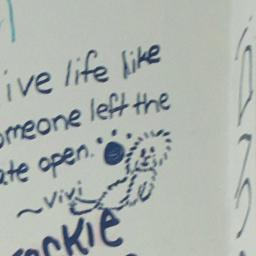 ive life like
omeone left the
ate open.
~Vivi
ockie